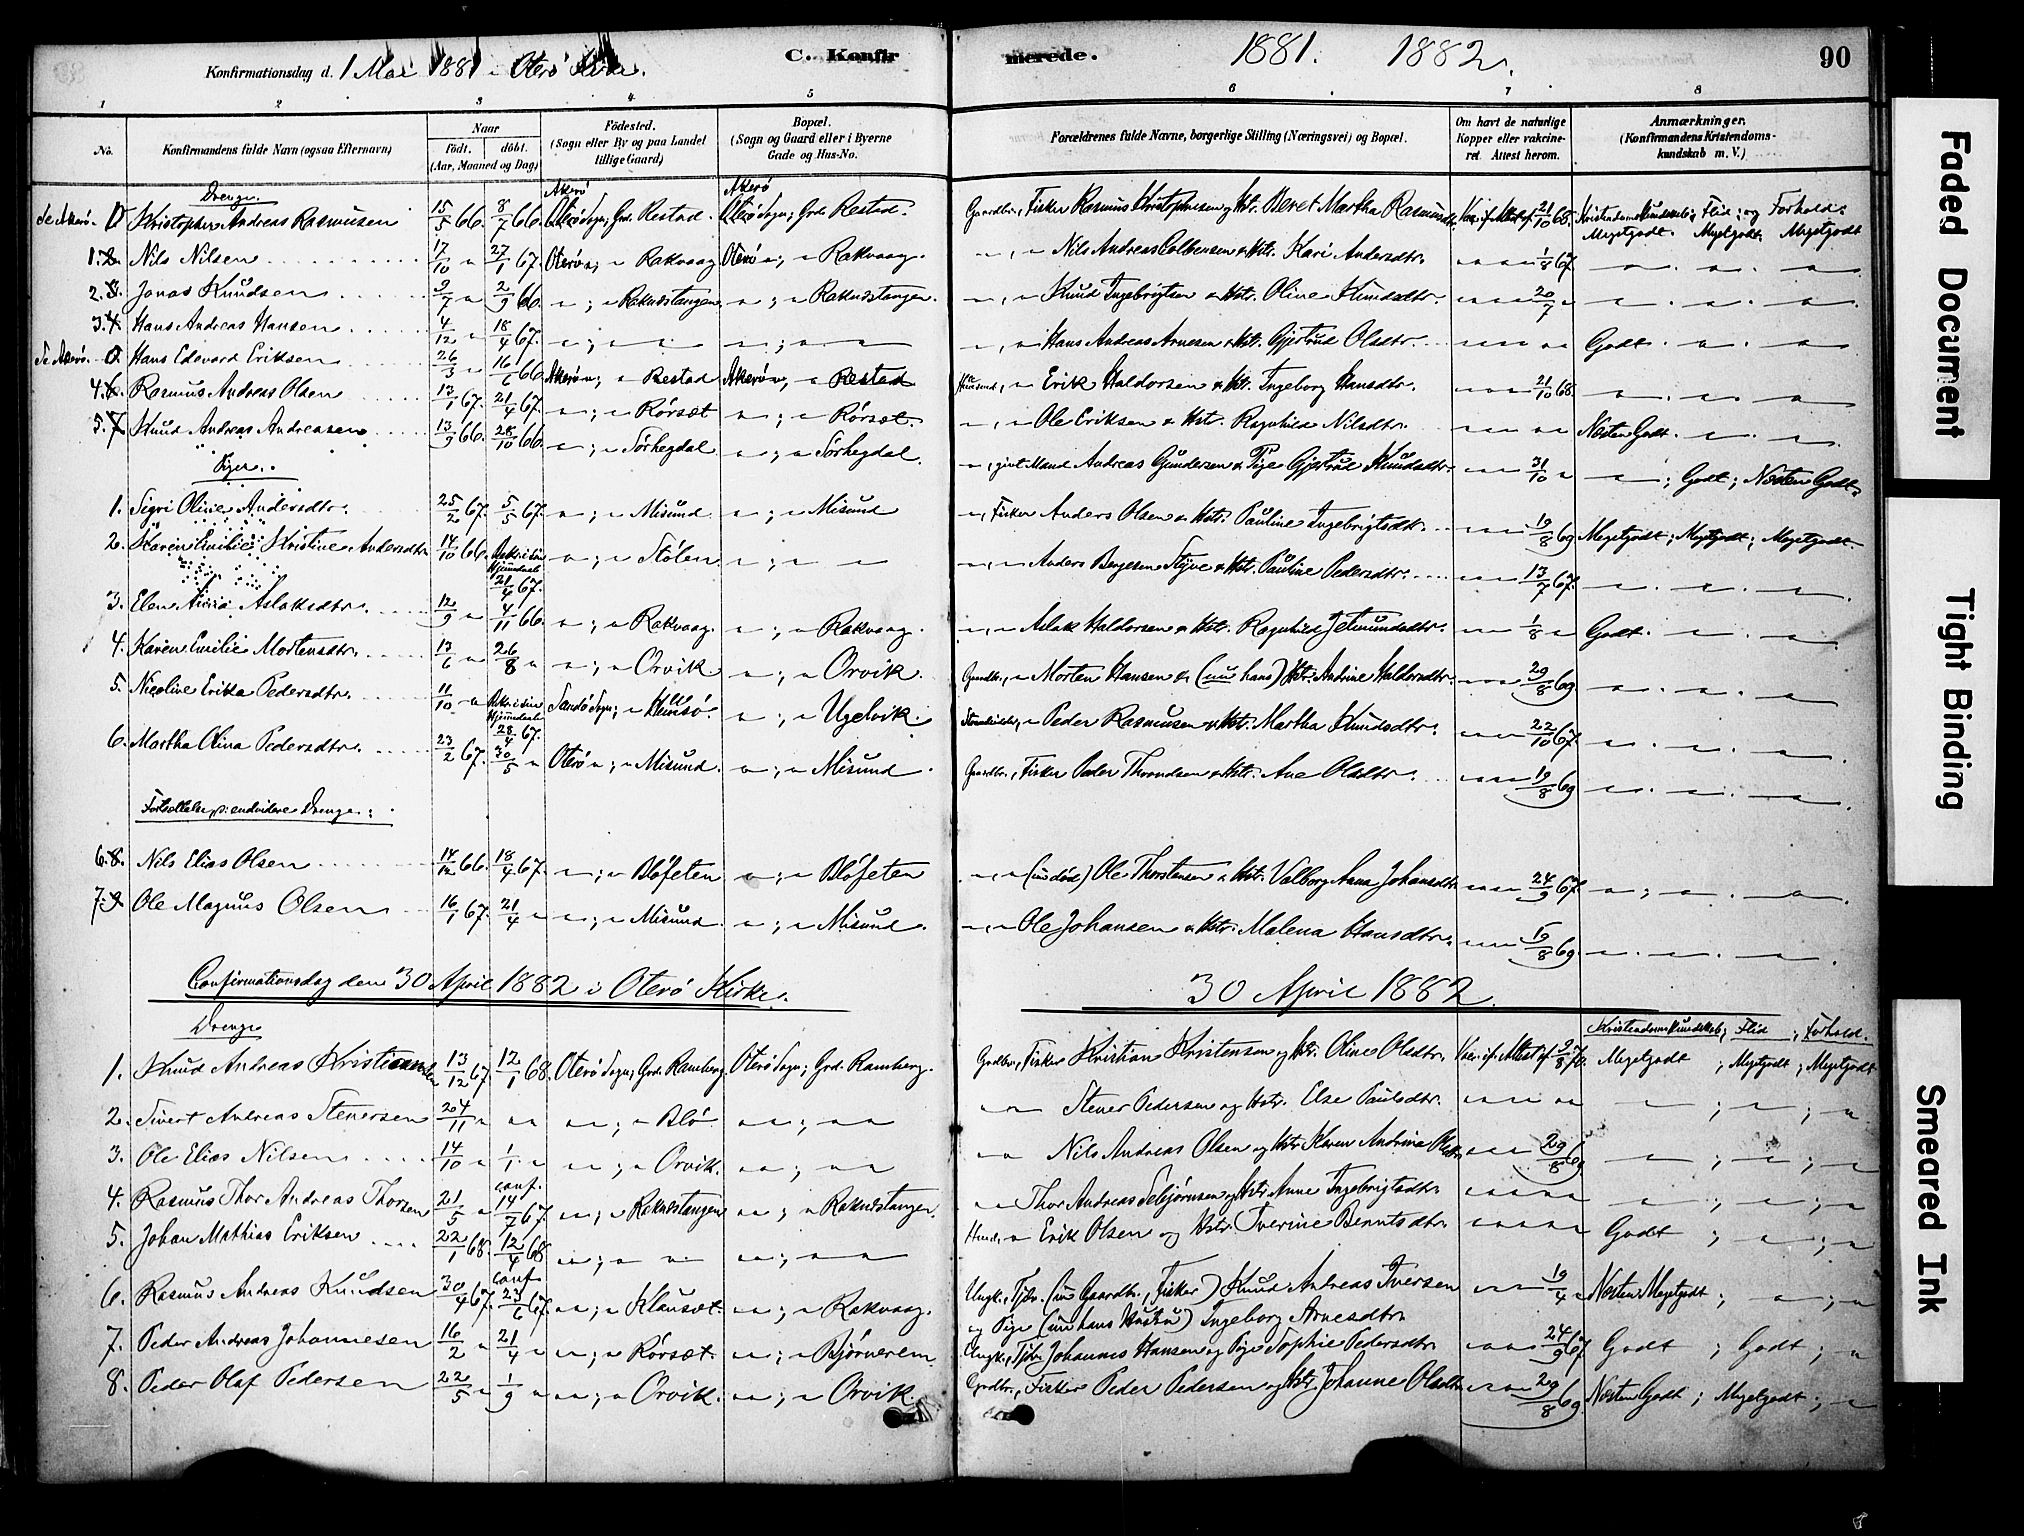 Konfirmationsdag d. 1 Mai 1881 i Oterö Kirke. C. Konfirmerede. 1881. 1882. 90
1 2 3 4 5 6 7 8
No. Konfirmandens fulde Navn (ogsaa Efternavn) Naar födt. döbt. (Aar, Maaned og Dag) Födested. (Sogn eller By og paa Landet tillige Gaard) Bopæl. (Sogn og Gaard eller i Byerne Gade og Hus-No. Forældrenes fulde Navne, borgerlige Stilling (Næringsvei) og Bopæl. Om havt de naturlige Kopper eller vakcineret. Attest herom. Anmærkninger. (Konfirmandens Kristendomskundskab m. V.)
Drenge.
Se Akerö. Kristopher Andreas Rasmusen 15/5 66. 8/7 66. Akerö Sogn; Grd. Restad. Akerö Sogn; Grd. Restad. Gaardbr., Fisker Rasmus Kristophersen og Hstr. Beret Martha Rasmusdtr. Vac. if. Attest af 21/10 68. Kristendomskundskab; Flid; og Forhold: Megetgodt. Megetgodt. Megetgodt
1. Nils Nilsen 17/10 " 27/1 67. Oterö "; " Rakvaag Oterö "; " Rakvaag. " , " Nils Andreas Colbensen & Hstr. Kari Andersdtr. " " " 1/8 67. " . " . "
2. Jonas Knudsen 9/7 " 2/9 66. " ; " Raknestangen " ; " Raknestangen. " , " Knud Ingebrigtsen & Hstr. Oline Knudsdtr. " " " 20/7 " " . " . "
3. Hans Andreas Hansen 4/12 " 18/4 67. " ; " " " ; " " " , " Hans Andreas Arnesen & Hstr. Gjertrud Olsdtr. " " " " Godt. " . "
Se Akerö. Hans Edevard Eriksen 26/3 " 16/6 66. Akerö "; " Restad Akerö "; " Restad Husmd., " Erik Haldorsen & Hstr. Ingeborg Hansdtr. " " " 21/10 68. " . " . "
4. Rasmus Andreas Olsen 13/1 67. 21/4 67. " ; " Rörsæt " ; " Rörsæt. " , " Ole Eriksen & Hstr. Ragnhilde Nilsdtr. " " " " Næsten Godt. " . "
5. Knud Andreas Andreasen 13/9 66. 28/10 66. " ; " Sörhegdal " ; " Sörhegdal. " , givt Mand Andreas Gundersen & Pige Gjertrud Knudsdtr. " " 31/10 " " ; Godt ; Næsten Godt.
Piger.
1. Sigri Oline Andersdtr. 25/2 67. 5/5 67. " ; " Misund " ; " Misund " , Fisker Anders Olsen & Hstr. Pauline Ingebrigtsdtr. " " " 19/8 69 Megetgodt; Megetgodt; Megetgodt.
2. Karen Emilie Kristine Andersdtr. 14/10 66. 21/4 67. " ; " Stölen " ; " " " , " Anders Bergesen Stÿve & Hstr. Pauline Pedersdtr. " " " 13/7 67. " . " . "
3. Elen Anna Aslaksdtr. 12/9 " 4/11 66. " ; " Rakvaag. " ; " Rakvaag. " , " Aslak Haldorsen & Hstr. Ragnhild Jetmundsdtr. " " 1/8 " Godt. " . "
4. Karen Emilie Mortensdtr. 13/6 " 26/8 " " ; " Orvik " ; " Orvik. Gaardbr., " Morten Hansen & (nu hans) Hstr. Andrine Haldorsdtr. " " " 29/8 69 " . " . "
5. Nicoline Erika Pedersdtr. 11/10 " 28/4 67. Sandö Sogn; " Husö. " ; " Ugelvik. " Peder Rasmusen & Hstr. Martha Knudsdtr. " " 22/10 67. " . " . "
6. Martha Olina Pedersdtr. 23/2 67. 30/5 " Oterö "; " Misund. " ; " Misund. Gaardbr., Fisker Peder Thorndsen & Hstr. Ane Olsdtr. " " " 19/8 69 " . " . "
Fortsættelse p: endvidere Drenge:
6. Nils Elias Olsen 14/12 66. 18/4 67. " ; " Blöfeten " ; " Blöfeten " , " (nu död) Ole Thorstensen & Hstr. Valborg Anna Johansdtr. " " " 24/9 67. " . " . "
7. Ole Magnus Olsen 16/1 67. 21/4 " " ; " Misund. " ; " Misund. " , " Ole Johansen & Hstr. Malena Hansdtr. " " " 19/8 69. " . " . "
Confirmationsdag den 30 April 1882 i Oterö Kirke. 30 April 1882.
Drenge Kristendomskundskab; Flid ; Forhold.
1. Knud Andreas Kristiansen 13/12 67. 12/1 68. Oterö Sogn; Grd. Ramberg. Oterö Sogn; Grd. Ramberg. Grdbr., Fisker Kristian Kristensen og Hstr. Oline Olsdtr. Vac. if. Attest af 9/8 70. Megetgodt ; Megetgodt ; Megetgodt
2. Sivert Andreas Stenersen 24/11 " " " " ; " Blö " ; " " " " Stener Pedersen og Hstr. Else Paulsdtr. " " " " " ; " ; "
3. Ole Elias Nilsen 14/10 " 1/1 " " ; " Orvik. " ; " " " " Nils Andreas Olsen og Hstr. Karen Andrina Olsdtr. " " " 29/8 69 " ; " ; "
4. Rasmus Thor Andreas Thorsen 21/5 " conf. 14/7 67. " ; " Raknestangen " ; " Raknestangen. " " Thor Andreas Sebjörnsen og Hstr. Anne Ingebrigtsdtr. " " " " " ; " ; "
5. Johan Mathias Eriksen 22/1 68. 12/4 68. " ; " " " ; " " Husmd. " Erik Olsen og Hstr. Iverine Berntsdtr. " " " " Godt ; " ; "
6. Rasmus Andreas Knudsen 30/4 67. conf. 23/6 67. " ; " Klauset. " ; " Rakvaag. Ungk., Tjstr. (nu Gaardbr., Fisker) Knud Andreas Iversen " " " 19/4 " Næsten Megetgodt ; " ; "
og Pige (nu hans Hustru) Ingeborg Arnesdtr.
7. Peder Andreas Johannesen 16/2 " 21/4 " " ; " Rörsæt. " ; " Björnerem. Ungk., Tjstr. Johannes Hansen og Pige Sophie Pedersdtr. " " " 24/9 67 Godt ; Godt ; "
8. Peder Olaf Pedersen 22/5 " 1/9 " " ; " Orvik. " ; " Orvik Grdbr., Fisker Peder Pedersen og Hstr. Johanne Olsdtr. " " " 29/8 69 Næsten Godt ; Megetgodt ; "
Faded Document
Tight Binding
Smeared Ink